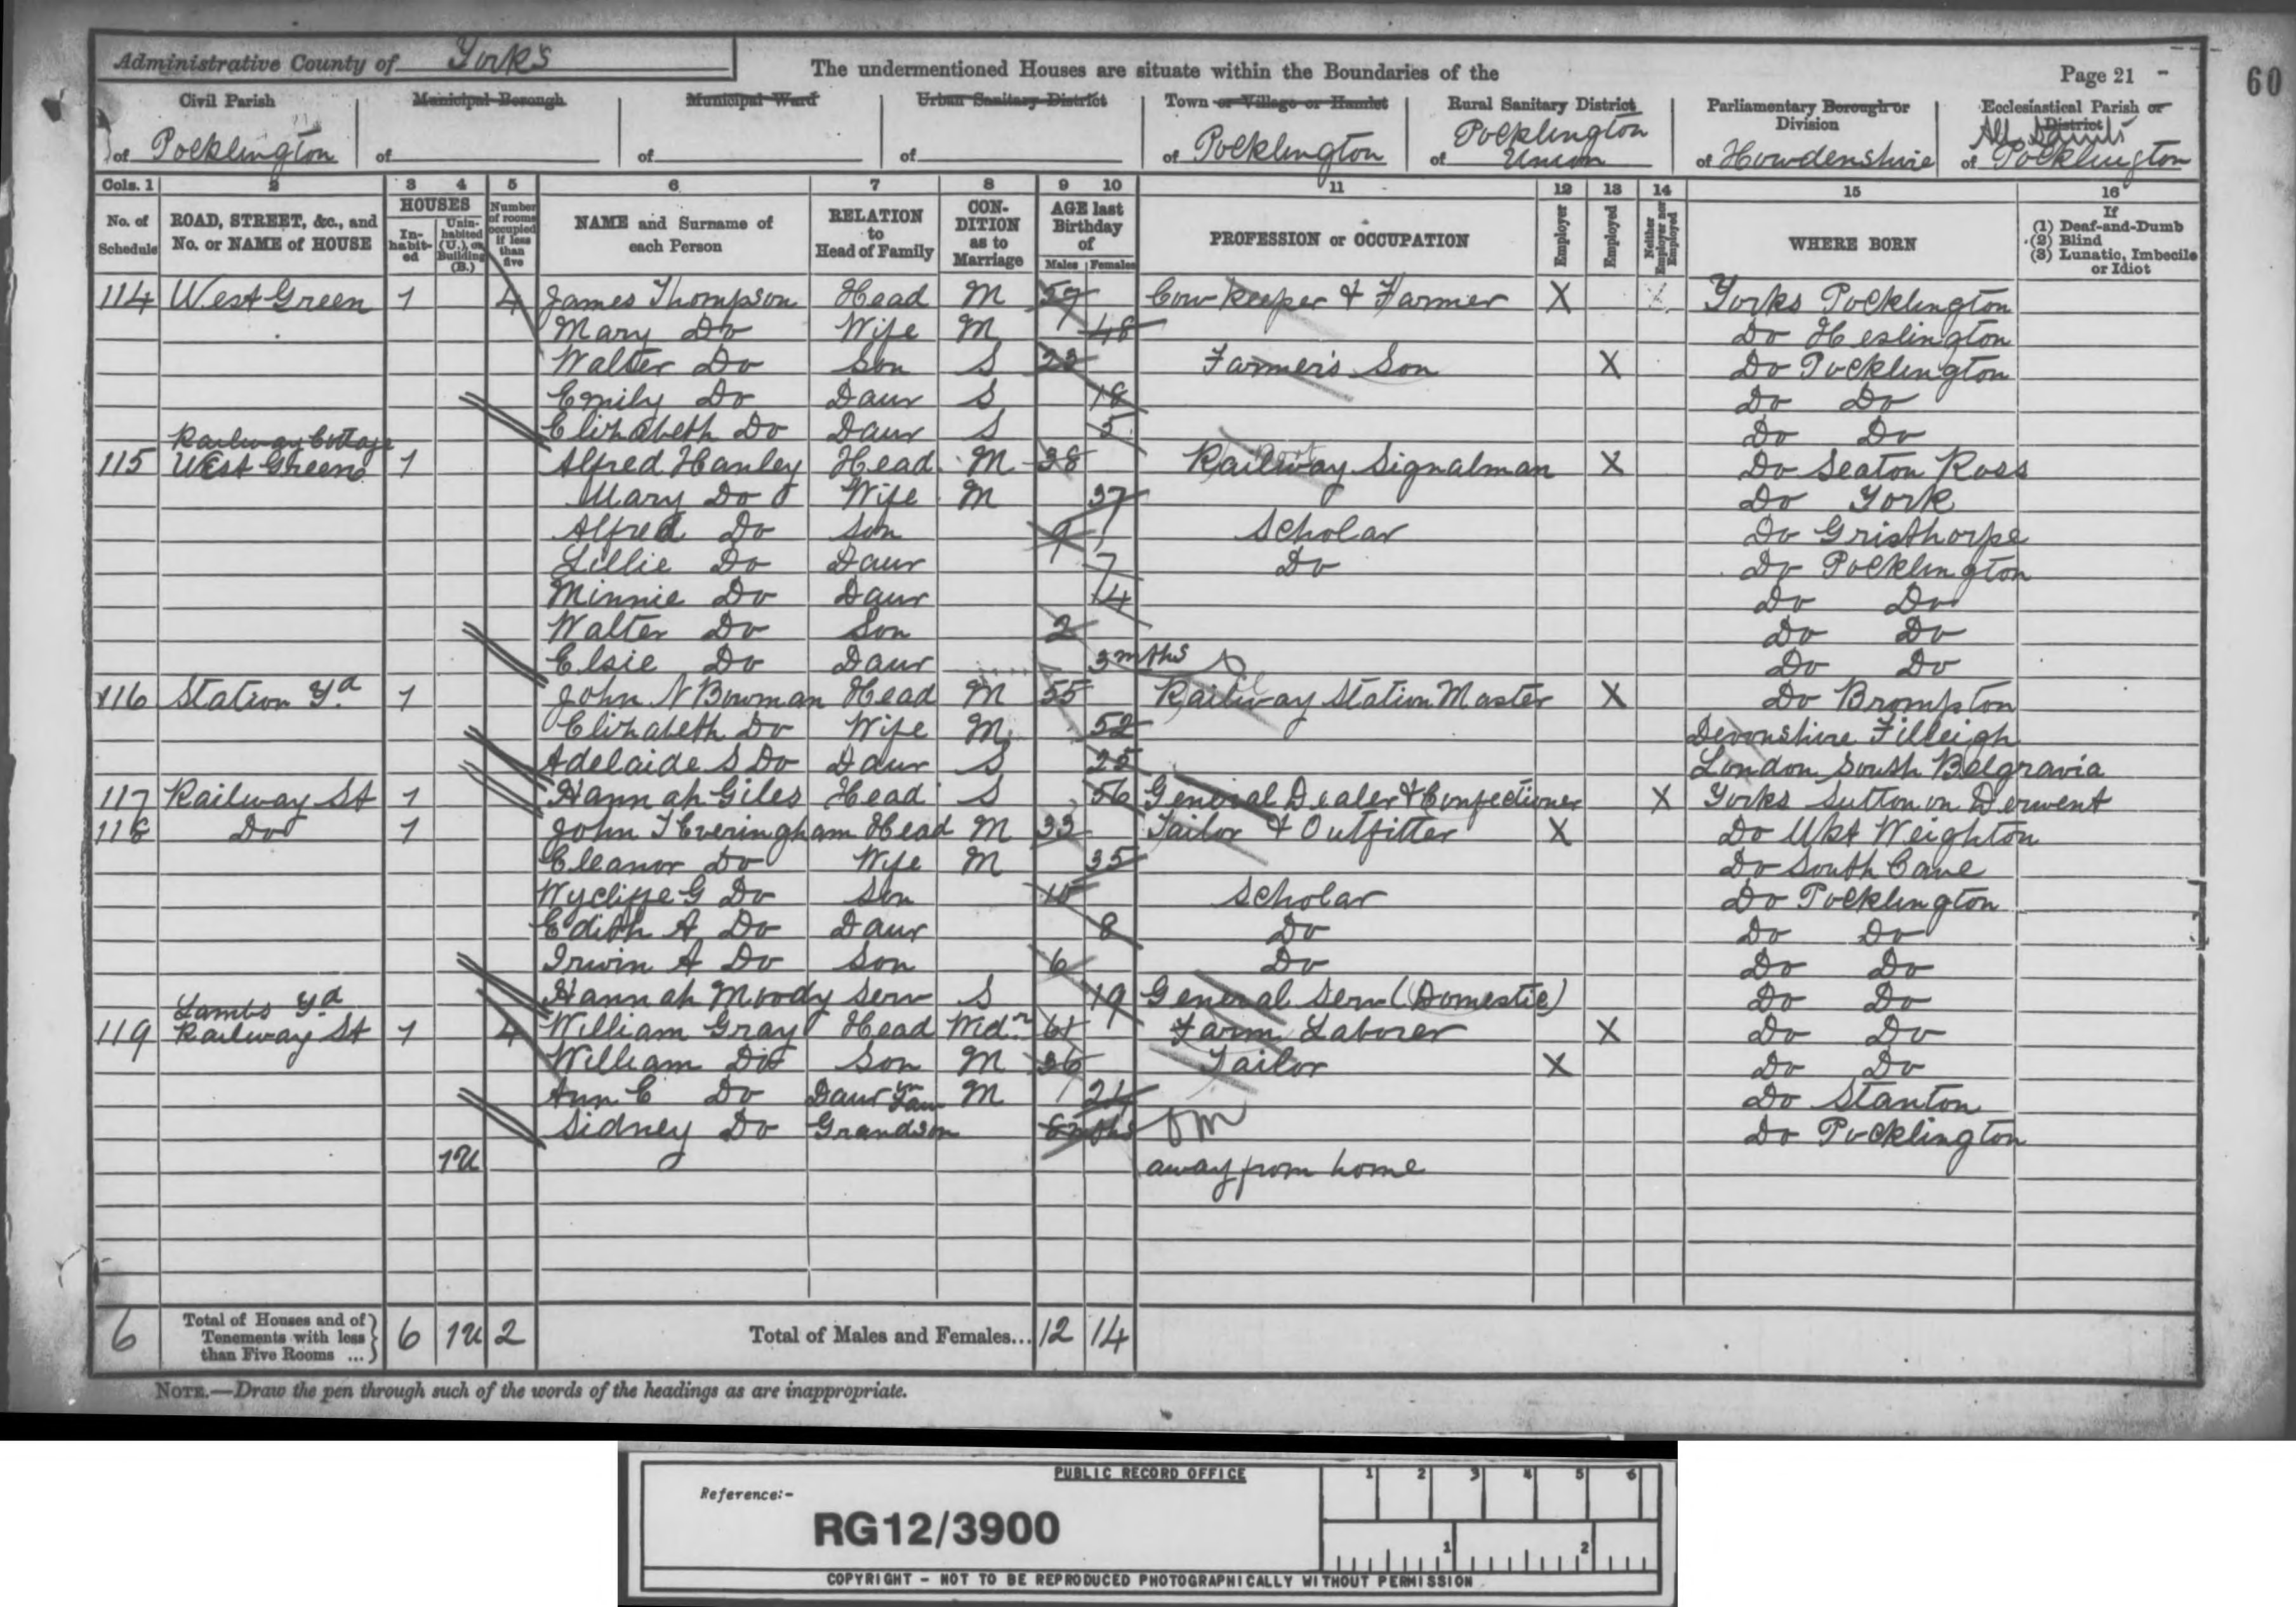 Administrative County of Yorks
The undermentioned Houses are situate within the Boundaries of the
Page 21
60
Civil Parish of Pocklington
Municipal Borough of
Municipal Ward of
Urban Sanitary District of
Town or Village or Hamlet of Pocklington
Rural Sanitary District of Pocklington Union
Parliamentary Borough or Division of Howdenshire
Ecclesiastical Parish or District of All Saints Pocklington
Cols. 1 2 3 4 5 6 7 8 9 10 11 12 13 14 15 16
No. of Schedule
ROAD, STREET, &c., and No. or NAME of HOUSE
HOUSES
In-habit-ed
Unin-habited (U.), or Building (B.)
Number of rooms occupied if less than five
NAME and Surname of each Person
RELATION to Head of Family
CON-DITION as to Marriage
AGE last Birthday of
Males Females
PROFESSION or OCCUPATION
Employer
Employed
Neither Employer nor Employed
WHERE BORN
If
(1) Deaf-and-Dumb
(2) Blind
(3) Lunatic, Imbecile or Idiot
114 West Green 1 4 James Thompson Head M 59 Cow keeper & Farmer X Yorks Pocklington
Mary Do Wife M 48 Do Heslington
Walter Do Son S 23 Farmer's Son X Do Pocklington
Emily Do Daur S 18 Do Do
Elizabeth Do Daur S 5 Do Do
Railway Cottage
115 West Green 1 Alfred Hanley Head M 38 Railway Signalman X Do Seaton Ross
Mary Do Wife M 37 Do York
Alfred Do Son 9 Scholar Do Gristhorpe
Lillie Do Daur 7 Do Do Pocklington
Minnie Do Daur 4 Do Do
Walter Do Son 2 Do Do
Elsie Do Daur 3 mths Do Do
116 Station Yd 1 John N Bowman Head M 55 Railway Station Master X Do Brompton
Elizabeth Do Wife M 52 Devonshire Filleigh
Adelaide S Do Daur S 25 London South Belgravia
117 Railway St 1 Hannah Giles Head S 56 General Dealer & Confectioner X Yorks Sutton on Derwent
118 Do 1 John T Everingham Head M 33 Tailor & Outfitter X Do Mkt Weighton
Eleanor Do Wife M 35 Do South Cave
Wycliffe G Do Son 10 Scholar Do Pocklington
Edith A Do Daur 8 Do Do Do
Irwin A Do Son 6 Do Do Do
Hannah Moody Serv S 19 General Serv (Domestic) Do Do
Lambs Yd
119 Railway St 1 4 William Gray Head Widr Farm Laborer X Do Do
William Do Son M 36 Tailor X Do Do
Ann E Do Daur in Law M 24 Do Stanton
Sidney Do Grandson 8 mths Do Pocklington
1U away from home
6 Total of Houses and of Tenements with less than Five Rooms ... 6 1U 2 Total of Males and Females... 12 14
NOTE.—Draw the pen through such of the words of the headings as are inappropriate.
PUBLIC RECORD OFFICE
1 2 3 4 5 6
Reference:-
RG12/3900
1 2
COPYRIGHT - NOT TO BE REPRODUCED PHOTOGRAPHICALLY WITHOUT PERMISSION